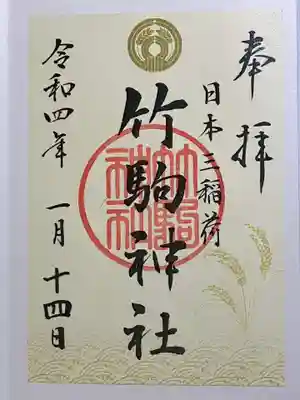 奉拝
日本三稲荷
竹駒神社
竹駒神社
令和四年 一月 十四日